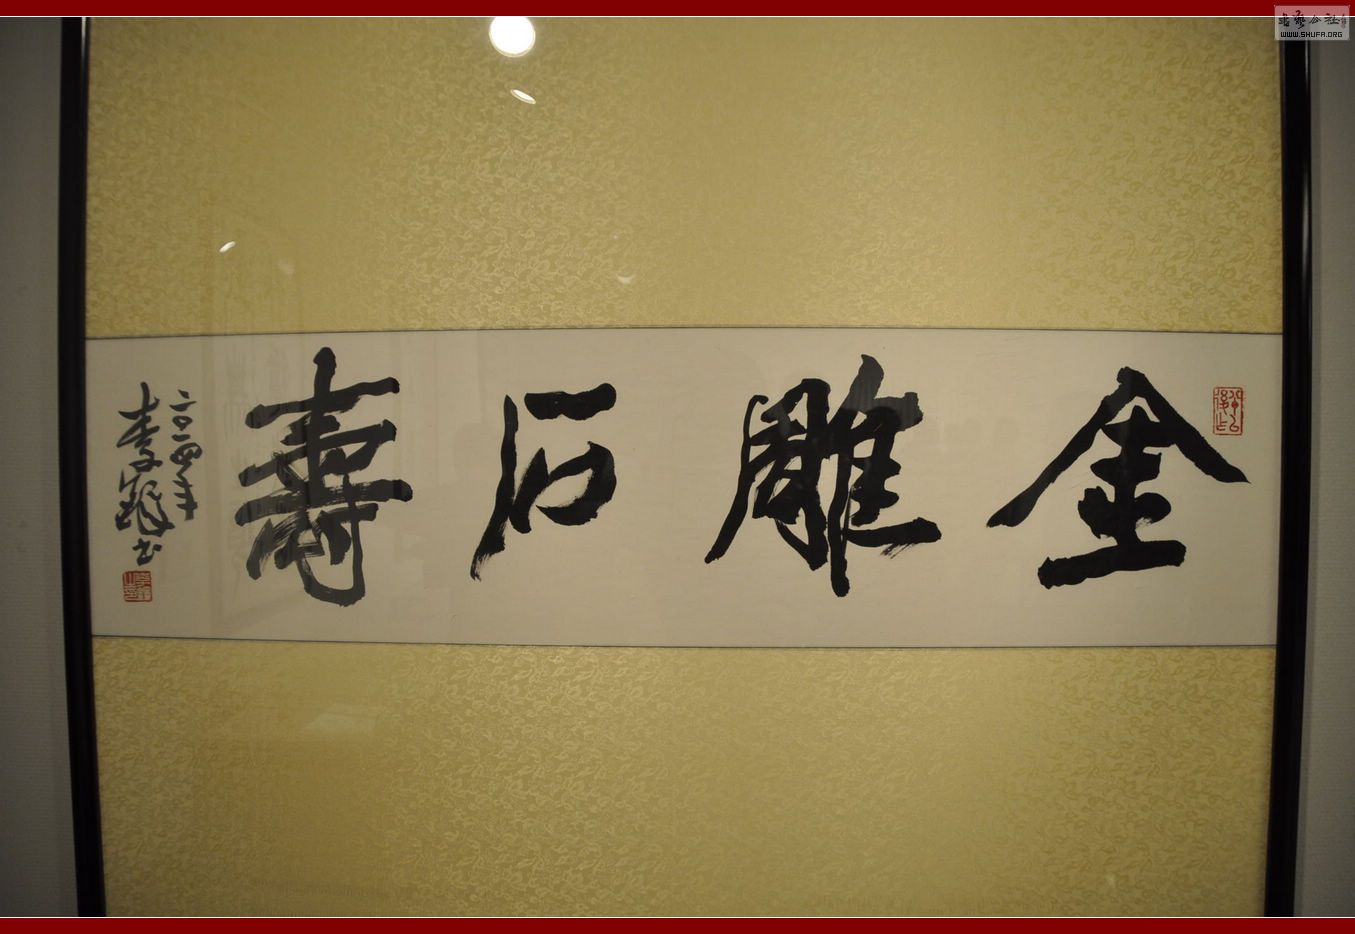 金雕石壽
二〇一四年
李鐸书
书艺公社
WWW.SHUFA.ORG